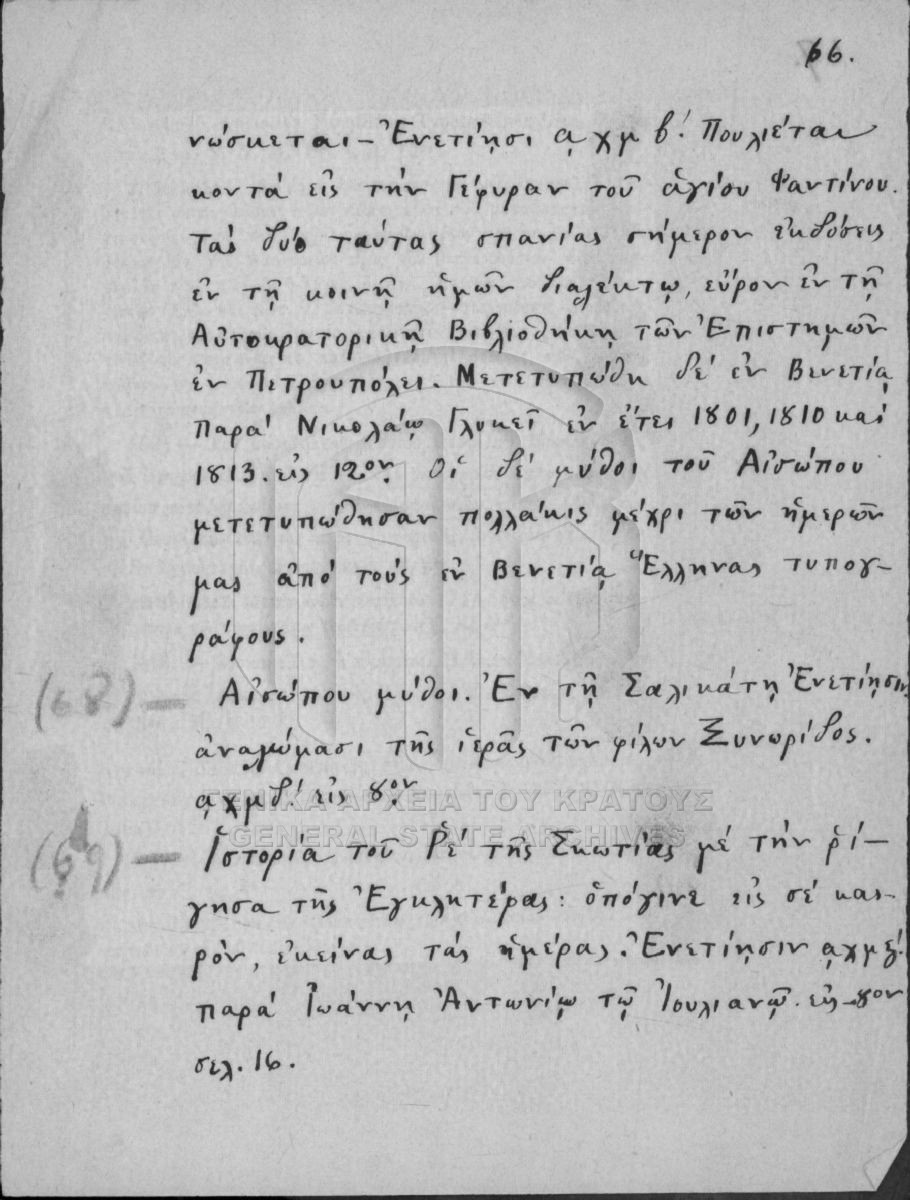 66.
νώσκεται – Ἐνετίησι αχμβ΄. Πουλιέται
κοντά εἰς τήν Γέφυραν τοῦ ἁγίου Φαντίνου.
Τάς δύο ταύτας σπανίας σήμερον ἐκδόσεις
ἐν τῇ κοινῇ ἡμῶν διαλέκτῳ, εὗρον ἐν τῇ
Αὐτοκρατορικῇ Βιβλιοθήκῃ τῶν Ἐπιστημῶν
ἐν Πετρουπόλει. Μετετυπώθη δέ ἐν Βενετίᾳ
παρά Νικολάῳ Γλυκεῖ ἐν ἔτει 1801, 1810 καί
1813. εἰς 12ον. Οἱ δέ μύθοι τοῦ Αἰσώπου
μετετυπώθησαν πολλάκις μέχρι τῶν ἡμερῶν
μας ἀπό τούς ἐν Βενετίᾳ Ἕλληνας τυπογ-
ράφους.
(68) — Αἰσώπου μύθοι. Ἐν τῇ Σαλικάτῃ Ἐνετίησιν,
ἀναλώμασι τῆς ἱερᾶς τῶν φίλων Ξυνωρίδος.
αχμδ΄. εἰς 8ον
(69) — Ἱστορία τοῦ Ρέ τῆς Σκωτίας μέ τήν ῥί-
γησα τῆς Ἐγκλητέρας: ὁπόγινε εἰς σέ και-
ρόν, ἐκείνας τάς ἡμέρας. Ἐνετίησιν αχμξ΄.
παρά Ἰωάννῃ Ἀντωνίῳ τῷ Ἰουλιανῷ. εἰς 8ον
σελ. 16.
ΓΕΝΙΚΑ ΑΡΧΕΙΑ ΤΟΥ ΚΡΑΤΟΥΣ
GENERAL STATE ARCHIVES